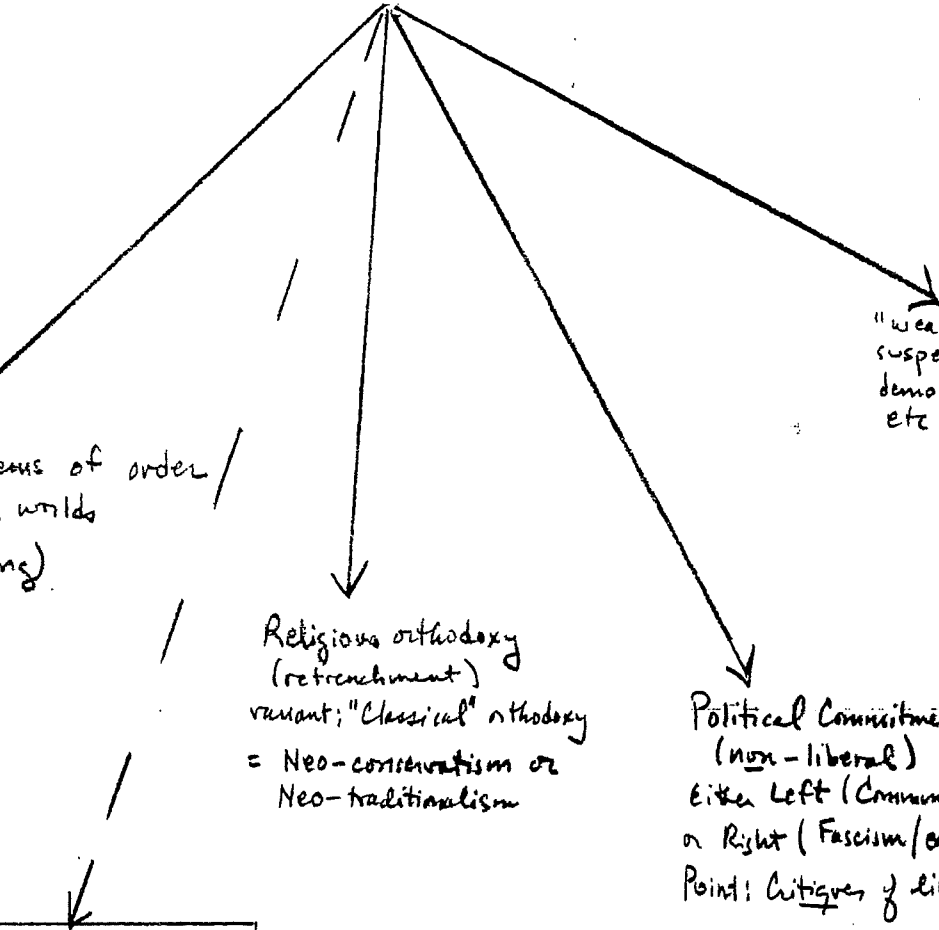 "wea
suspe
demo
etc
ems of order
worlds
ng)
Religious orthodoxy
(retrenchment)
variant: "Classical" orthodoxy
= Neo-conservatism or
Neo-traditionalism
Political Commitme
(non-liberal)
Either Left (Commun
or Right (Fascism/
Point: Critiques of li